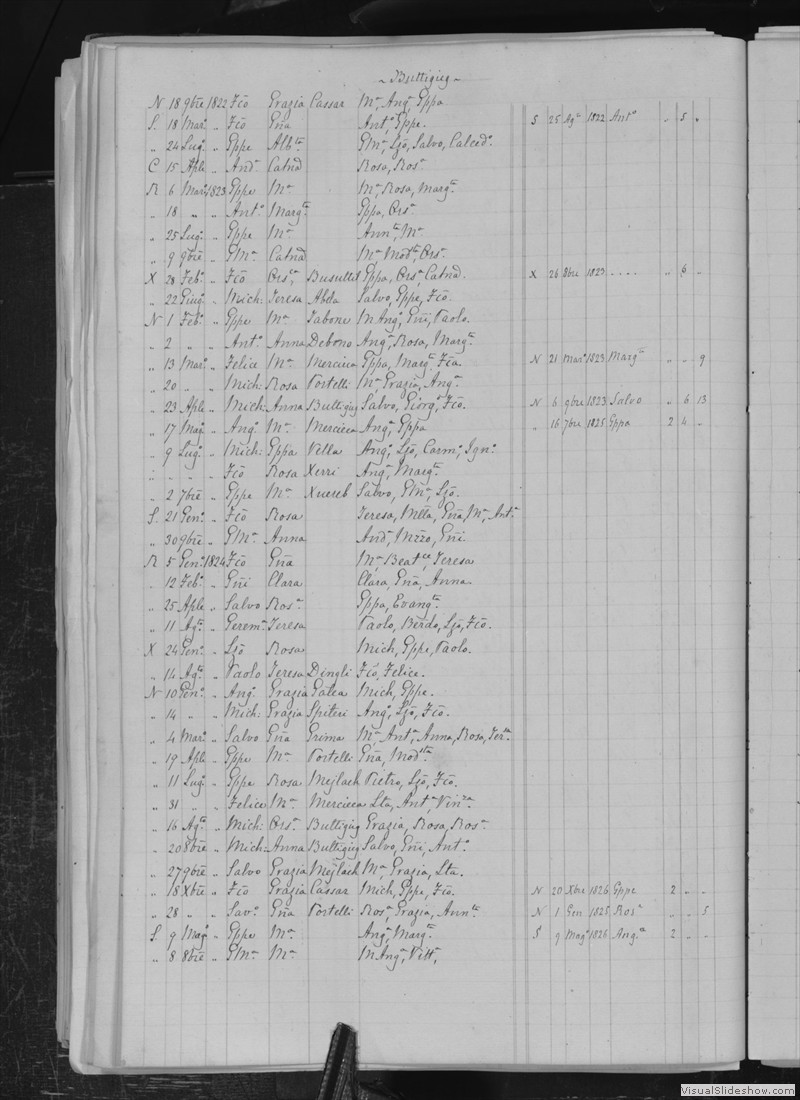 ~ Buttigieg ~
N 18 9bre 1822 Fcõ Grazia Cassar Mª, Angª, Gppa
S. 18 Marº „ Fcõ Gña Antº, Gppe. S 25 Agº 1822 Antº „ 5 „
„ 24 Lugº „ Gppe Albtª Salvo, Calcedº.
C 15 Aple „ Andª Catnª Rosa, Rosª
R 6 Marº 1823 Gppe Mª Mª Rosa, Margtª
„ 18 „ „ Antº Margtª Gppa, Orsª
„ 25 Lugº „ Gppe Mª Annta, Mª
„ 9 9bre „ GMª Catnª Mª Modtª, Orsª
X 28 Febº „ Fcõ Orsª, Busuttil Gppa, Orsª, Catnª. X 26 8bre 1823 .... „ 6 „
„ 22 Giugº „ Mich: Teresa Abela Salvo, Gppe, Fcõ.
N 1 Febº „ Gppe Mª Tabone M Angª, Gñi, Paolo
„ 2 „ „ Antº Anna Debono Angª, Rosa, Margtª
„ 13 Marº „ Felice Mª Mercieca Gppa, Margtª, Fcã. N 21 Marº 1823 Margtª „ „ 9
„ 20 „ „ Mich: Rosa Portelli Mª Grazia, Angª
„ 23 Aple „ Mich: Anna Buttigieg Salvo, Giorgº, Fcõ. N 6 9bre 1823 Salvo „ 6 13
„ 17 Magº „ Angº Mª Mercieca Angª, Gppa „ 16 7bre 1825 Gppa 2 4 „
„ 9 Lugº „ Mich: Gppa Vella Angª, Ljõ, Carmº, Ignº
„ „ „ „ Fcõ Rosa Xerri Angª, Margtª
„ 2 7bre „ Gppe Mª Xuereb Salvo, GMª, Ljõ.
S. 21 Genº „ Fcõ Rosa Teresa, Gña, Mª, Antª
„ 30 9bre „ GMª Anna Andª, Gñi.
R 5 Genº 1824 Fcõ Gña Mª Beatce, Teresa
„ 12 Febº „ Gñi Clara Clara, Gña, Anna
„ 25 Aple „ Salvo Rosª Gppa, Evangtª
„ 11 Agº „ Geremª Teresa Paolo, Berdo, Ljõ, Fcõ.
X 24 Genº „ Ljõ Rosa Mich, Gppe, Paolo.
„ 14 Agº „ Paolo Teresa Dingli Fcõ, Felice.
N 10 Genº „ Angº Grazia Galea Mich, Gppe.
„ 14 „ „ Mich: Grazia Spiteri Angº, Ljõ, Fcõ.
„ 4 Marº „ Salvo Gña Grima Mª, Antª, Anna, Rosa,
„ 19 Aple „ Gppe Mª Portelli Gña, Modtª
„ 11 Lugº „ Gppe Rosa Mejlach Pietro, Ljõ, Fcõ.
„ 31 „ „ Felice Mª Mercieca Lta, Antª,
„ 16 Agº „ Mich: Orsª Buttigieg Grazia, Rosa, Rosª
„ 20 8bre „ Mich: Anna Buttigieg Salvo, Gñi, Antº
„ 27 9bre „ Salvo Grazia Mejlach Mª, Grazia, Lta.
„ 18 Xbre „ Fcõ Grazia Cassar Mich, Gppe, Fcõ. N 20 Xbre 1826 Gppe 2 „ „
„ 28 „ „ Savº Gña Portelli Rosª, Grazia, Annta N 1 Gen 1825 Rosª „ „ 5
S 9 Magº „ Gppe Mª Angª, Margtª S 9 Magº 1826 Angª 2 „ „
„ 8 8bre „ GMª Mª M Angª, Vittª,
VisualSlideshow.com